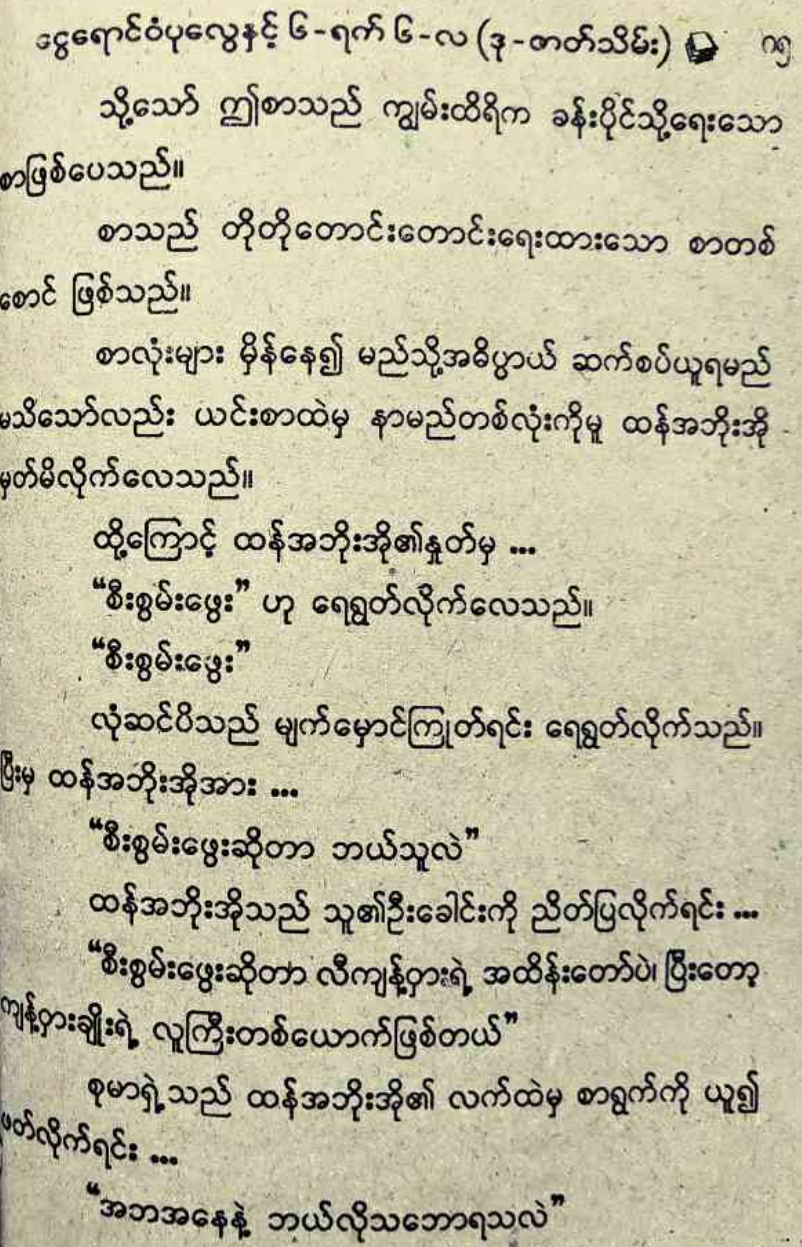 ငွေရောင်ဝံပုလွေနှင့် ၆-ရက် ၆-လ (ဒု-ဇာတ်သိမ်း) ၈၅
သို့သော် ဤစာသည် ကျွမ်းထိရိက ခန်းပိုင်သို့ရေးသော
စာဖြစ်ပေသည်။
စာသည် တိုတိုတောင်းတောင်းရေးထားသော စာတစ်
စောင် ဖြစ်သည်။
စာလုံးများ မှိန်နေ၍ မည်သို့အဓိပ္ပာယ် ဆက်စပ်ယူရမည်
မသိသော်လည်း ယင်းစာထဲမှ နာမည်တစ်လုံးကိုမူ ထန်အဘိုးအို
မှတ်မိလိုက်လေသည်။
ထို့ကြောင့် ထန်အဘိုးအို၏နှုတ်မှ ...
“စီးစွမ်းဖွေး” ဟု ရေရွတ်လိုက်လေသည်။
“စီးစွမ်းဖွေး”
လုံဆင်ပိသည် မျက်မှောင်ကြုတ်ရင်း ရေရွတ်လိုက်သည်။
ပြီးမှ ထန်အဘိုးအိုအား ...
“စီးစွမ်းဖွေးဆိုတာ ဘယ်သူလဲ”
ထန်အဘိုးအိုသည် သူ၏ဦးခေါင်းကို ညိတ်ပြလိုက်ရင်း ...
“စီးစွမ်းဖွေးဆိုတာ လီကျန့်ဝှားရဲ့ အထိန်းတော်ပဲ၊ ပြီးတော့
ကျန့်ဝှားချိုးရဲ့ လူကြီးတစ်ယောက်ဖြစ်တယ်”
စုမာရှဲ့သည် ထန်အဘိုးအို၏ လက်ထဲမှ စာရွက်ကို ယူ၍
ဖတ်လိုက်ရင်း ...
“အဘအနေနဲ့ ဘယ်လိုသဘောရသလဲ”